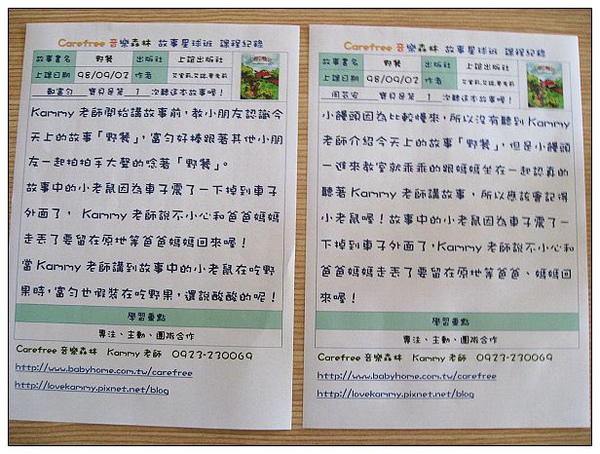 Carefree 音樂森林 故事星球班 課程紀錄
故事書名 野餐 出版社 上誼出版社
上課日期 98/09/02 作者
勳富勻 寶貝是第 1 次聽這本故事喔!
Kammy 老師開始講故事前,教小朋友認識今
天上的故事「野餐」,富勻好棒跟著其他小朋
友一起拍拍手大聲的唸著「野餐」。
故事中的小老鼠因為車子震了一下掉到車子
外面了, Kammy 老師說不小心和爸爸媽媽
走丟了要留在原地等爸爸媽媽回來喔!
當 Kammy 老師講到故事中的小老鼠在吃野
果時,富勻也假裝在吃野果,還說酸酸的呢!
學習重點
專注、主動、團隊合作
Carefree 音樂森林 Kammy 老師 0923-230069
http://www.babyhome.com.tw/carefree
http://lovekammy.pixnet.net/blog
Carefree 音樂森林 故事星球班 課程紀錄
故事書名 野餐 出版社 上誼出版社
上課日期 98/09/02 作者
周芸安 寶貝是第 1 次聽這本故事喔!
小饅頭因為比較慢來,所以沒有聽到 Kammy
老師介紹今天上的故事「野餐」,但是小饅頭
一進來教室就乖乖的跟媽媽坐在一起認真的
聽著 Kammy 老師講故事,所以應該會記得
小老鼠喔!故事中的小老鼠因為車子震了一
下掉到車子外面了,Kammy 老師說不小心和
爸爸媽媽走丟了要留在原地等爸爸、媽媽回
來喔!
學習重點
專注、主動、團隊合作
Carefree 音樂森林 Kammy 老師 0923-230069
http://www.babyhome.com.tw/carefree
http://lovekammy.pixnet.net/blog